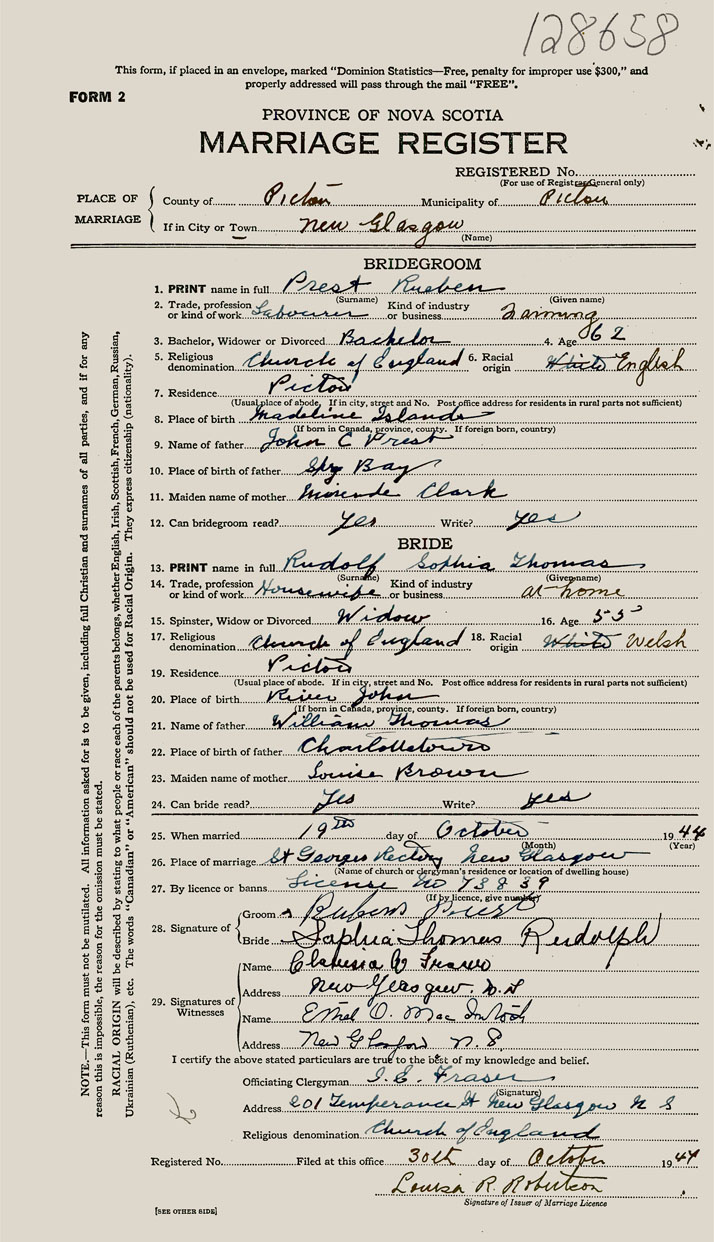 128658
This form, if placed in an envelope, marked "Dominion Statistics—Free, penalty for improper use $300," and
properly addressed will pass through the mail "FREE".
FORM 2
PROVINCE OF NOVA SCOTIA
MARRIAGE REGISTER
REGISTERED No.
(For use of Registrar General only)
PLACE OF MARRIAGE
County of Pictou Municipality of Pictou
If in City or Town New Glasgow
(Name)
BRIDEGROOM
1. PRINT name in full Prest Rueben
(Surname) (Given name)
2. Trade, profession or kind of work Labourer Kind of industry or business Farming
3. Bachelor, Widower or Divorced Bachelor 4. Age 62
5. Religious denomination Church of England 6. Racial origin White English
7. Residence Pictou
(Usual place of abode. If in city, street and No. Post office address for residents in rural parts not sufficient)
8. Place of birth Madeline Islands
(If born in Canada, province, county. If foreign born, country)
9. Name of father John C Prest
10. Place of birth of father Spry Bay
11. Maiden name of mother Clark
12. Can bridegroom read? Yes Write? Yes
BRIDE
13. PRINT name in full Rudolf Sophia Thomas
(Surname) (Given name)
14. Trade, profession or kind of work Housewife Kind of industry or business at home
15. Spinster, Widow or Divorced Widow 16. Age 55
17. Religious denomination Church of England 18. Racial origin White Welsh
19. Residence Pictou
(Usual place of abode. If in city, street and No. Post office address for residents in rural parts not sufficient)
20. Place of birth River John
(If born in Canada, province, county. If foreign born, country)
21. Name of father William Thomas
22. Place of birth of father Charlottetown
23. Maiden name of mother Louise Brown
24. Can bride read? Yes Write? Yes
25. When married 19th day of October 1944
(Month) (Year)
26. Place of marriage St Georges Rectory New Glasgow
(Name of church or clergyman's residence or location of dwelling house)
27. By licence or banns License No 73839
(If by licence, give number)
28. Signature of
Groom Rubens Prest
Bride Sophia Thomas Rudolph
29. Signatures of Witnesses
Name Fraser
Address New Glasgow. N.S
Name Ethel O. MacIntosh
Address New Glasgow N.S.
I certify the above stated particulars are true to the best of my knowledge and belief.
Officiating Clergyman I. E. Fraser
(Signature)
Address 201 Temperance St New Glasgow N S
Religious denomination Church of England
Registered No. Filed at this office 30th day of October 1944
Louisa R. Robertson
Signature of Issuer of Marriage Licence
[SEE OTHER SIDE]
NOTE.—This form must not be mutilated. All information asked for is to be given, including full Christian and surnames of all parties, and if for any
reason this is impossible, the reason for the omission must be stated.
RACIAL ORIGIN will be described by stating to what people or race each of the parents belongs, whether English, Irish, Scottish, French, German, Russian,
Ukrainian (Ruthenian), etc. The words "Canadian" or "American" should not be used for Racial Origin. They express citizenship (nationality).